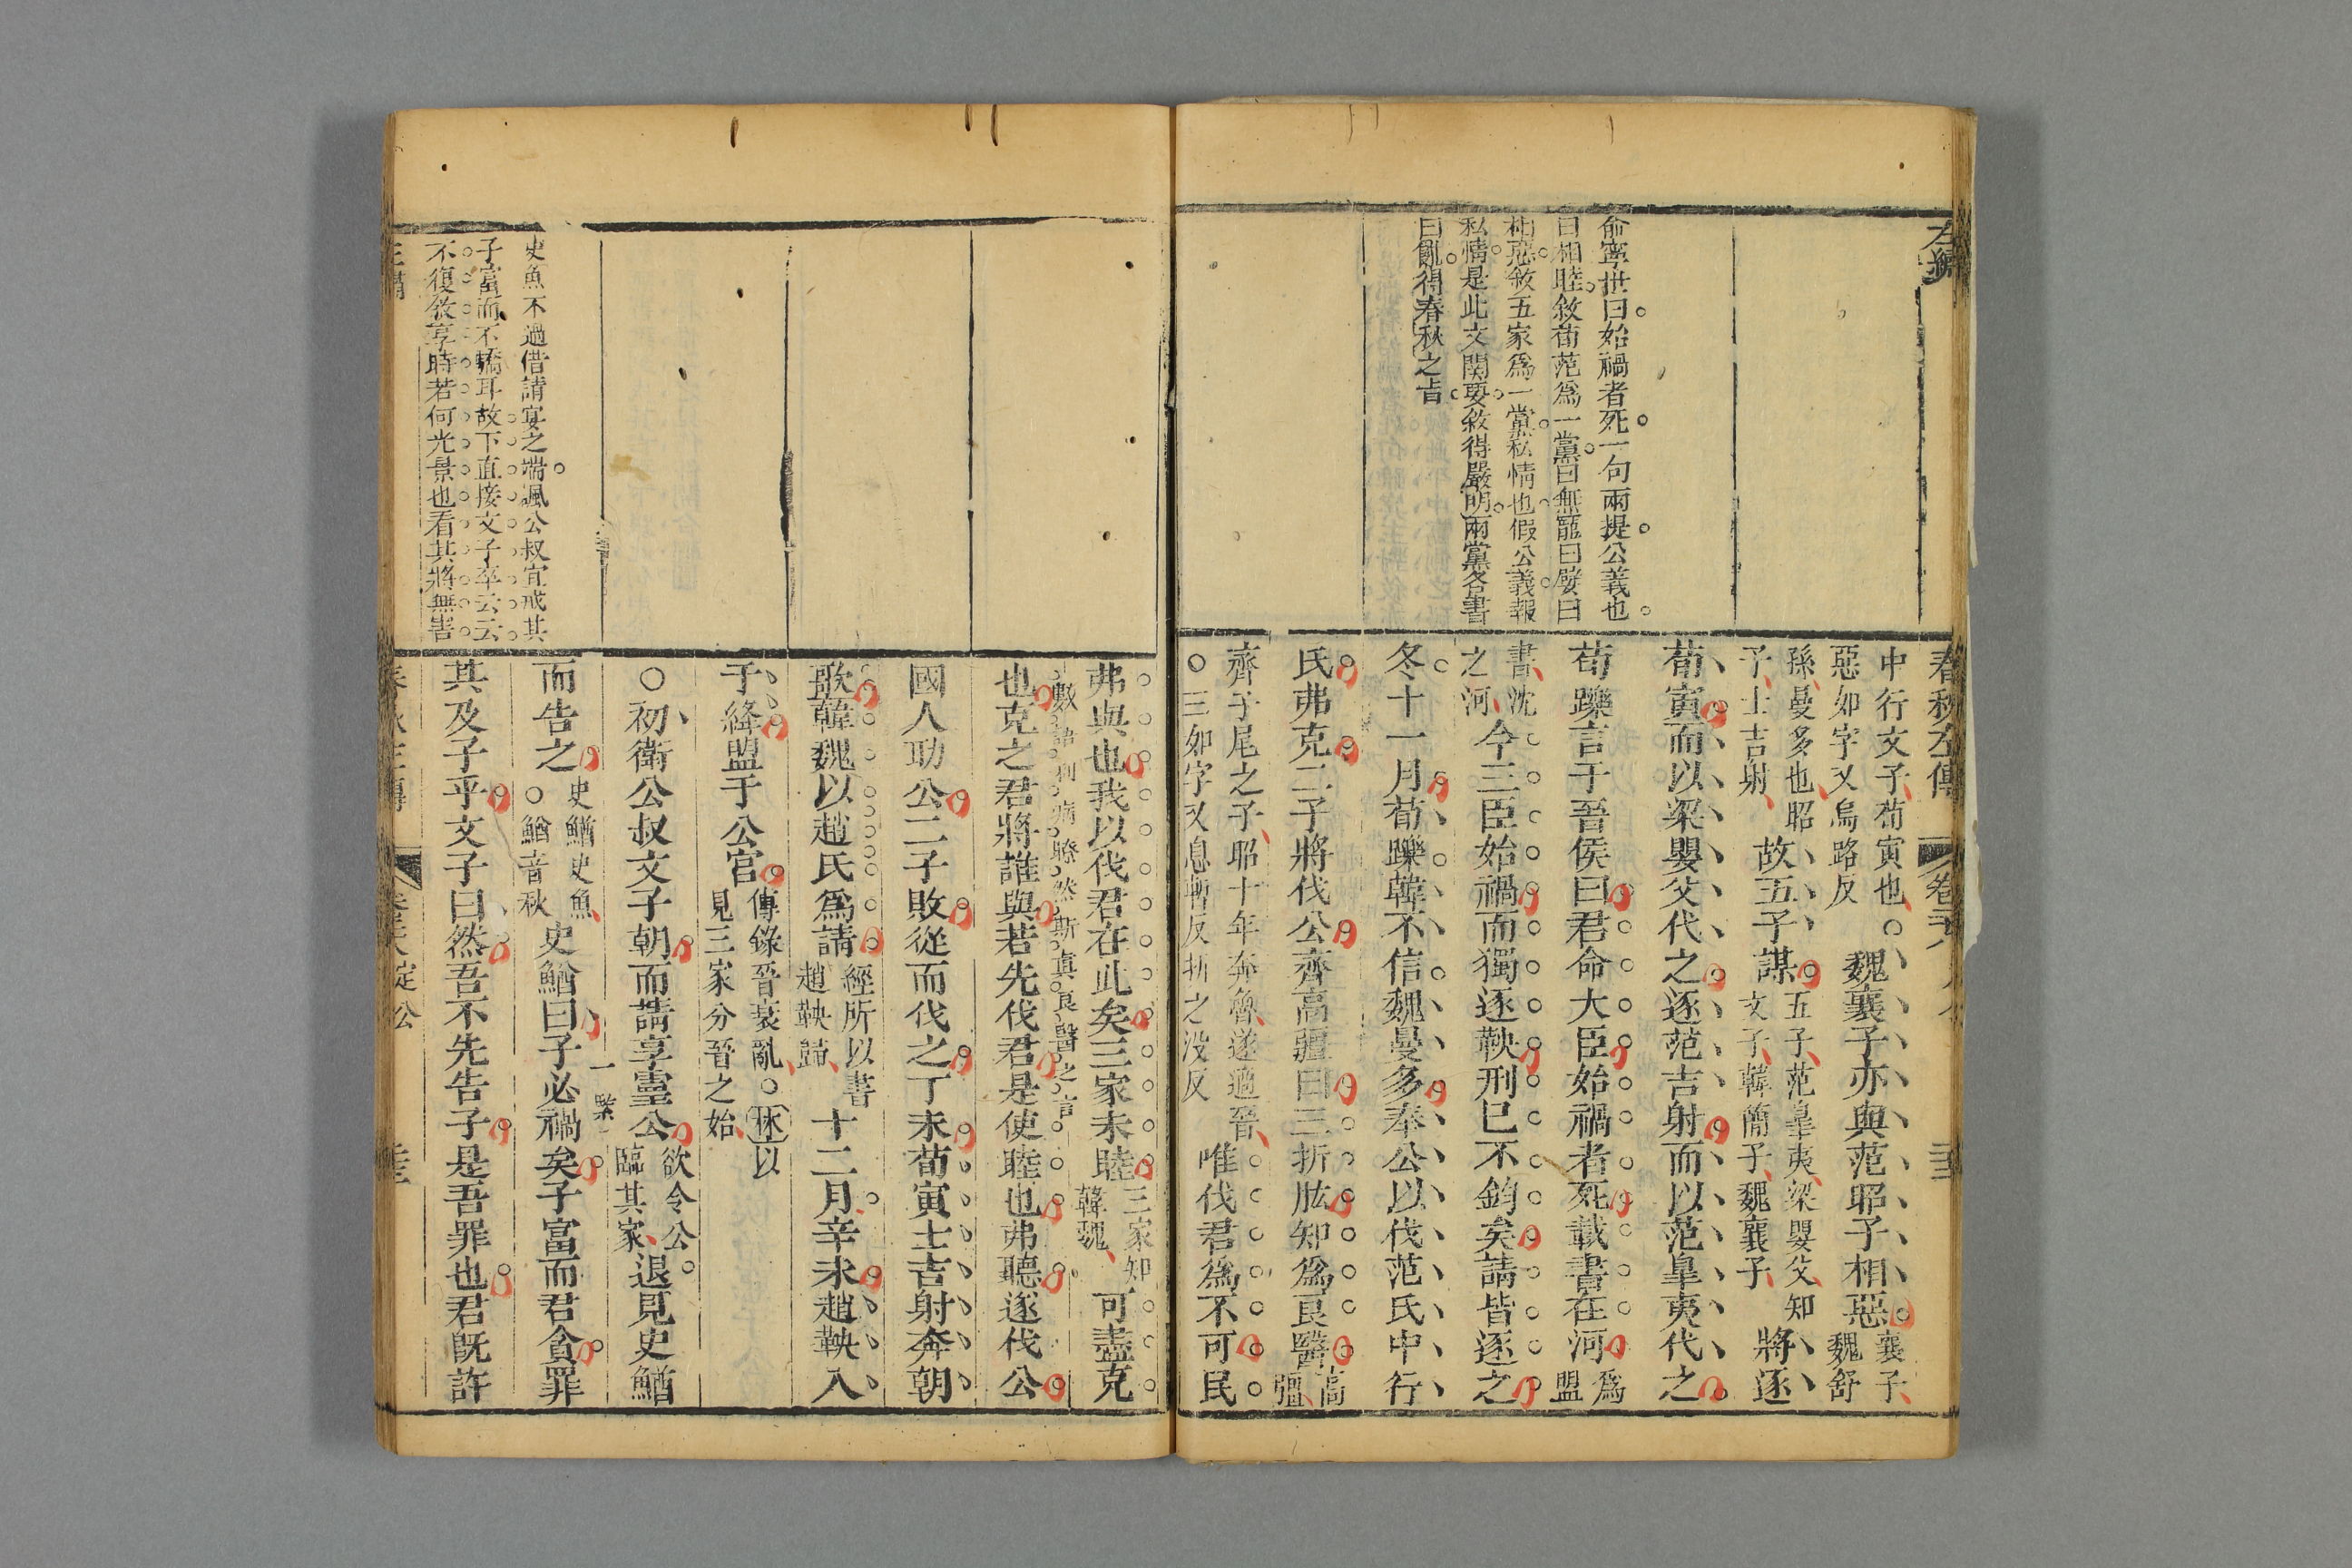 左繡
俞寧世曰始禍者死一句兩提公義也
曰相睦敘荀范爲一黨曰無寵曰嬖曰
相惡敘五家爲一黨私情也假公義報
私情是此文關要敘得嚴明兩黨各書
曰亂得春秋之旨
春秋左傳
中行文子荀寅也
惡如字又烏路反
魏襄子亦與范昭子相惡
襄子
魏舒
孫曼多也昭
子士吉射
故五子謀
五子范皐夷梁嬰父知
文子韓簡子魏襄子
將逐
荀寅而以梁嬰父代之逐范吉射而以范皐夷代之
荀躒言于晉侯曰君命大臣始禍者死載書在河
爲
盟
書沈
之河
今三臣始禍而獨逐鞅刑巳不鈞矣請皆逐之
冬十一月荀躒韓不信魏曼多奉公以伐范氏中行
氏弗克二子將伐公齊高疆曰三折肱知爲良醫
高
彊
齊子尾之子昭十年奔魯遂適晉
○三如字又息暫反折之沒反
唯伐君爲不可民
弗與也我以伐君在此矣三家未睦
三家知
韓魏
可盡克
數語利病瞭然斯真良醫之言
也克之君將誰與若先伐君是使睦也弗聽遂伐公
國人助公二子敗從而伐之丁未荀寅士吉射奔朝
歌韓魏以趙氏爲請
經所以書
趙鞅歸
十二月辛未趙鞅入
于絳盟于公宮
傳錄晉衰亂○林以
見三家分晉之始
○初衞公叔文子朝而請享靈公
欲令公
臨其家
退見史鰌
而告之
史鰌史魚
○鰌音秋
史鰌曰子必禍矣子富而君貪罪
其及子乎文子曰然吾不先告子是吾罪也君旣許
史魚不過借請宴之端諷公叔宜戒其
子富而不驕耳故下直接文子卒云云
不復敘享時若何光景也看其將無害
定公